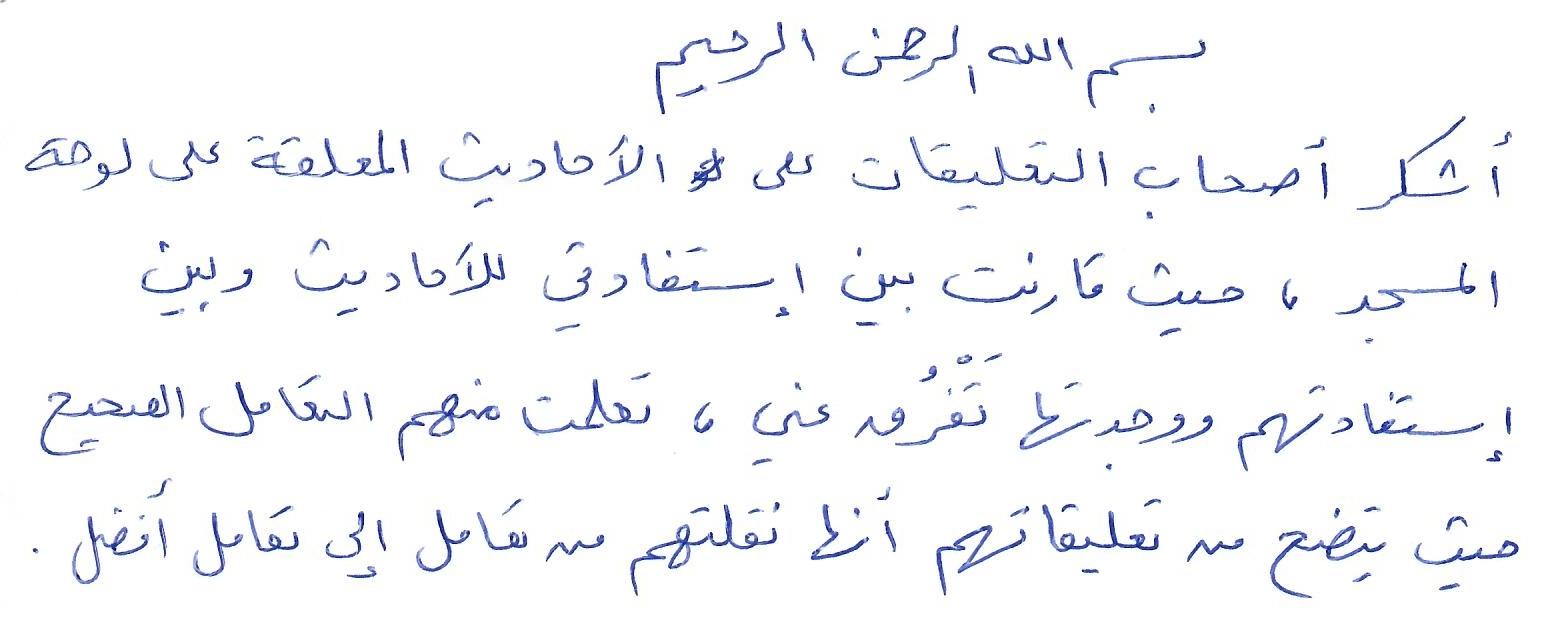 بسم الله الرحمن الرحيم
أشكر أصحاب التعليقات على الأحاديث المعلقة على لوحة
المسجد ، حيث قارنت بين إستفادتي للأحاديث وبين
إستفادتهم ووجدتها تَفْرُق عني ، تعلمت منهم التعامل الصحيح
حيث يتضح من تعليقاتهم أنها نقلتهم من تعامل إلي تعامل أفضل .